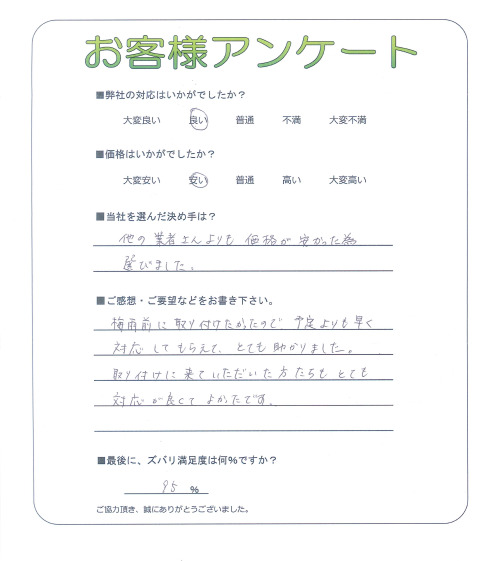 お客様アンケート
■弊社の対応はいかがでしたか？
大変良い 良い 普通 不満 大変不満
■価格はいかがでしたか？
大変安い 安い 普通 高い 大変高い
■当社を選んだ決め手は？
他の業者さんよりも価格が安かった為
選びました。
■ご感想・ご要望などをお書き下さい。
梅雨前に取り付けたかったので、予定よりも早く
対応してもらえて、とても助かりました。
取り付けに来ていただいた方たちもとても
対応が良くてよかったです。
■最後に、ズバリ満足度は何％ですか？
95 ％
ご協力頂き、誠にありがとうございました。